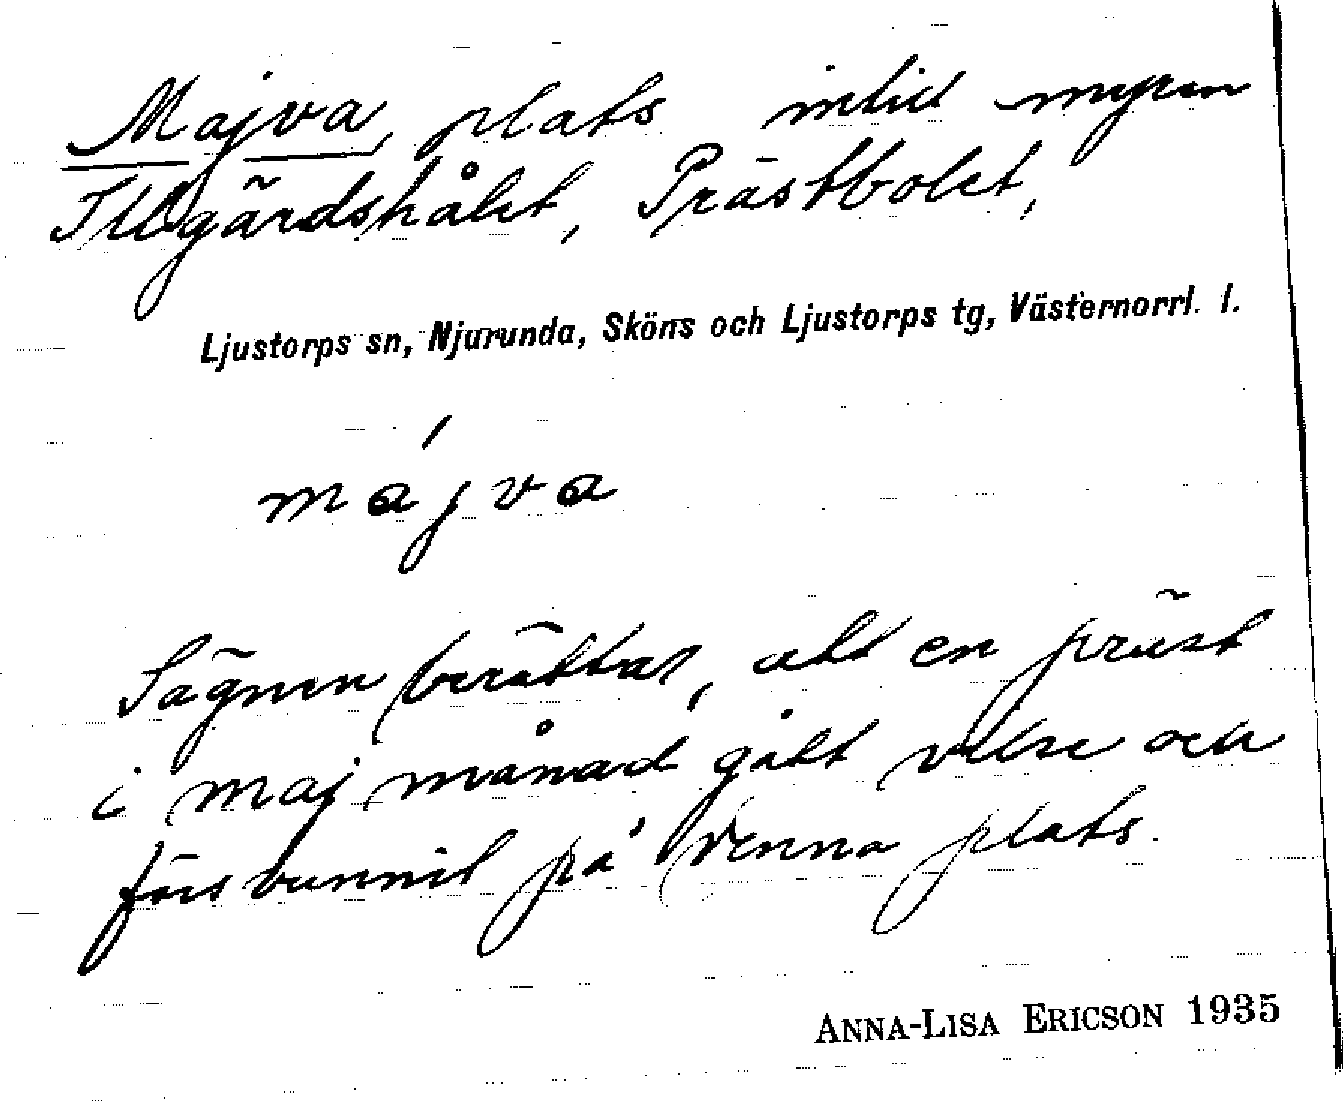 Majva, plats intill myren
Illgärdshålet, Prästbolet,
Ljustorps sn, Njurunda, Sköns och Ljustorps tg, Västernorrl. l.
májva
Sägnen berättar, att en präst
i maj månad gått vilse och
försvunnit på denna plats.
ANNA-LISA ERICSON 1935